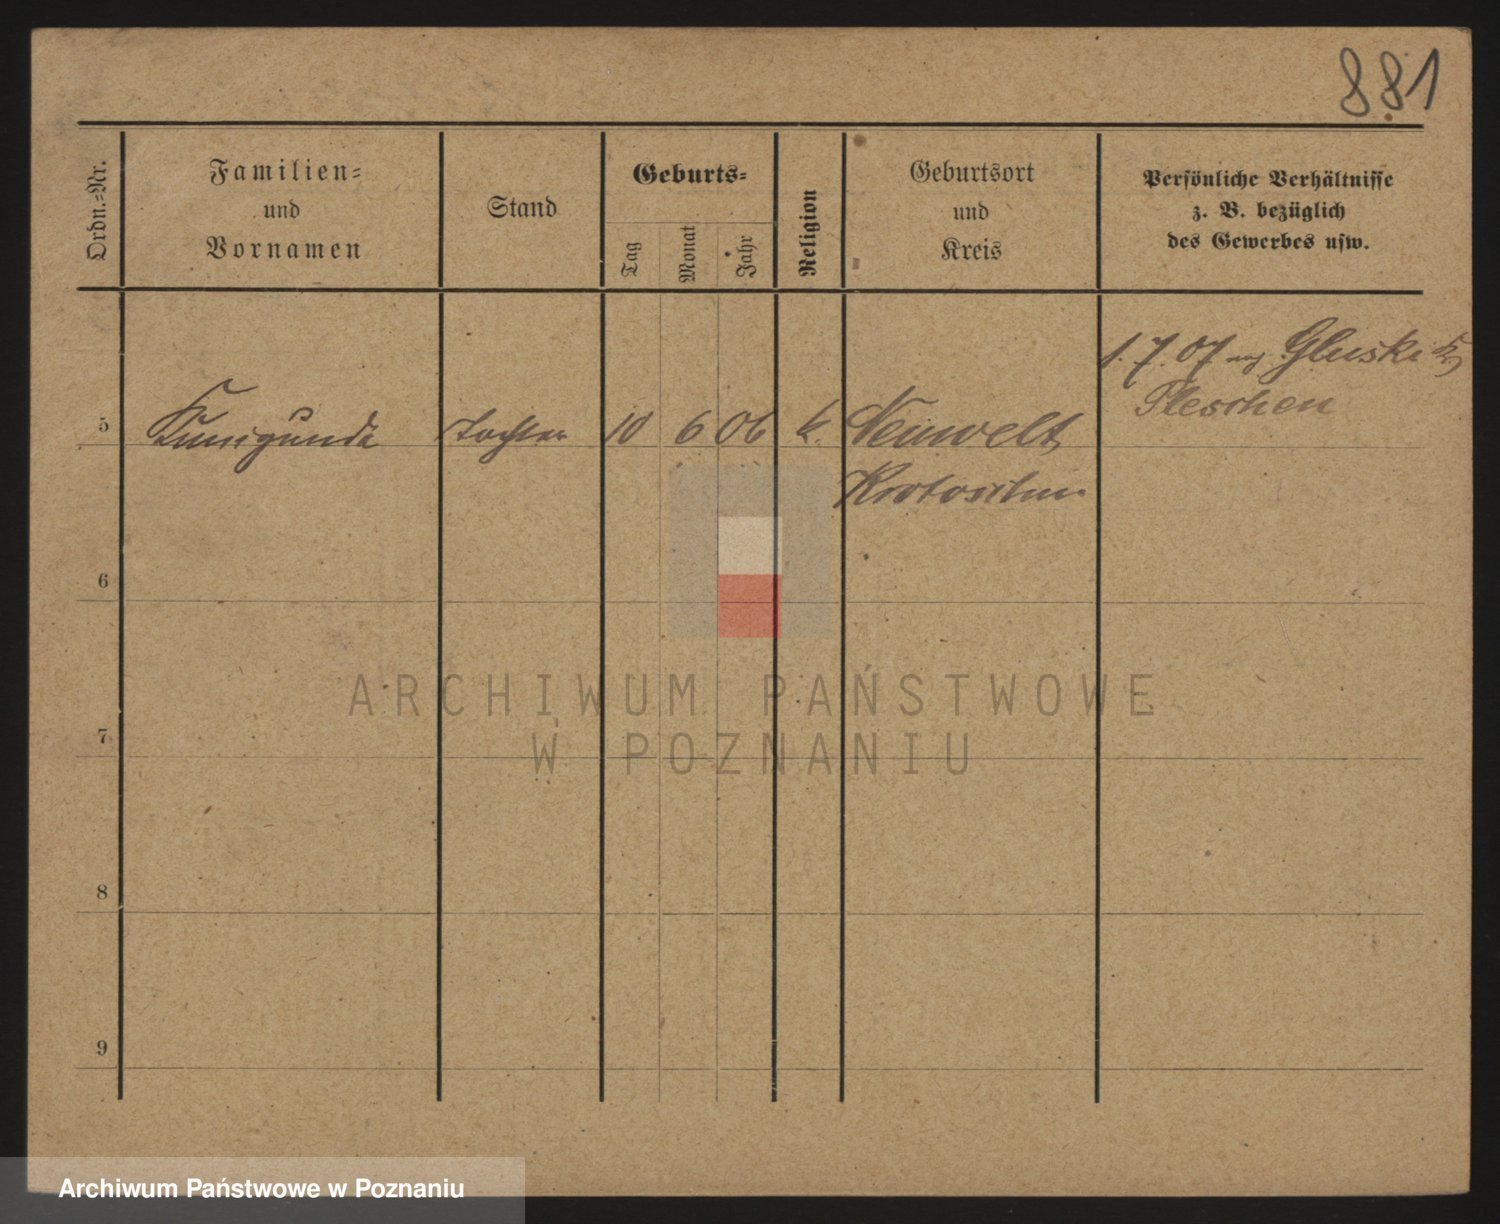 881
Ordn.-Nr.
Familien-
und
Vornamen
Stand
Geburts-
Tag
Monat
Jahr
Religion
Geburtsort
und
Kreis
Persönliche Verhältnisse
z. B. bezüglich
des Gewerbes usw.
1.7.07 Gluski
Pleschen
5 Kunigunde Tochter 10 6 06 k. Neuwelt
Krotoschin
6
7
8
9
ARCHIWUM PAŃSTWOWE
W POZNANIU
Archiwum Państwowe w Poznaniu